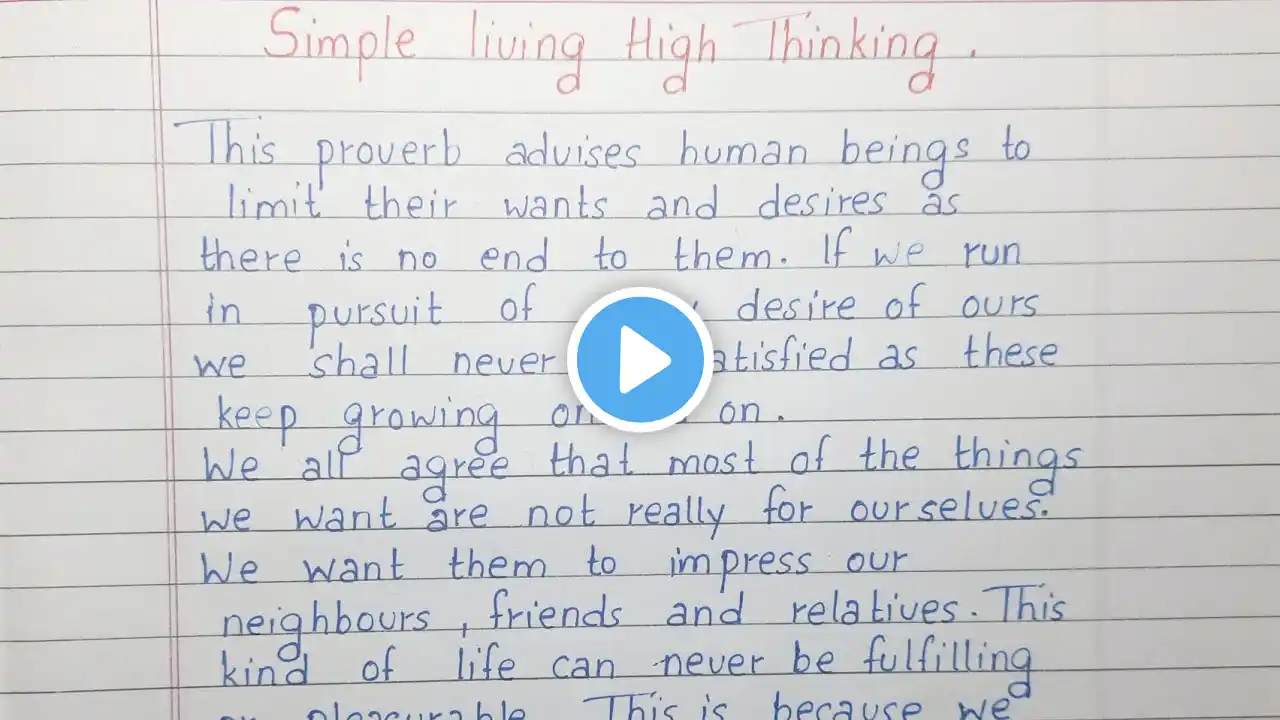 Simple living High Thinking.
This proverb advises human beings to
limit their wants and desires as
there is no end to them. If we run
in pursuit of desire of ours
we shall never atisfied as these
keep growing on on.
We all agree that most of the things
we want are not really for ourselves.
We want them to impress our
neighbours, friends and relatives. This
kind of life can never be fulfilling
or pleasurable. This is because we